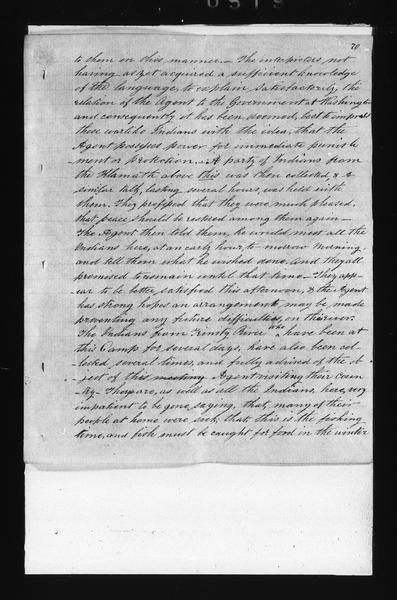 70
to them in this manner. – The interpreters, not
having as yet acquired a sufficient knowledge
of the language, to explain satisfactorily, the
relation of the Agent to the Government at Washington
and consequently it has been deemed, best to impress
these warlike Indians with the idea, that the
Agent possesses power for immediate punish
ment or protection. – A party of Indians from
the Klamath above this was then collected, & a
similar talk, lasting several hours, was held with
them. They professed that they were much pleased,
that peace should be restored among them again –
The Agent then told them, he would meet all the
Indians here, at an early hour, to morrow morning,
and tell them what he wished done, and they all
promised to remain until that time – They app-
ear to be better satisfied this afternoon, & the Agent
has strong hopes an arrangement may be made
preventing any future difficulties, on the river.
The Indians from Trinity River who have been at
this Camp for several days, have also been col-
lected, several times, and fully advised of the ob-
ject of the Agent visiting their Coun
try – They are, as well as all the Indians, here, very
impatient to be gone, saying, that, many of their
people at home were sick, that, this is the fishing
time, and fish must be caught for food in the winter